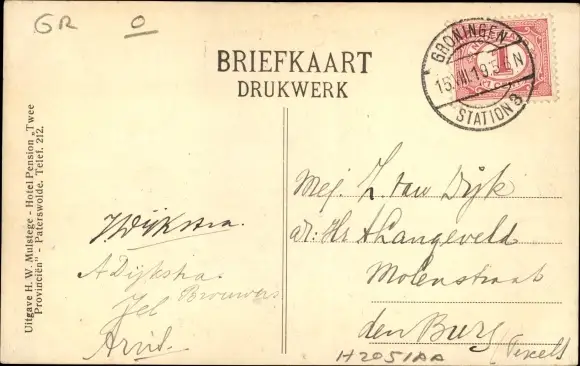 GR O
BRIEFKAART
DRUKWERK
GRONINGEN
STATION 3
1
Uitgave H. W. Mulstege - Hotel Pension „Twee
Provinciën" - Paterswolde. Telef. 212.
J Dijkstra.
A Dijkstra.
Jel Brouwers
Arvid.
Mej. L van Dijk
ad: Hr A Langeveld
Molenstraat
den Burg
(Texel)
H2051AA